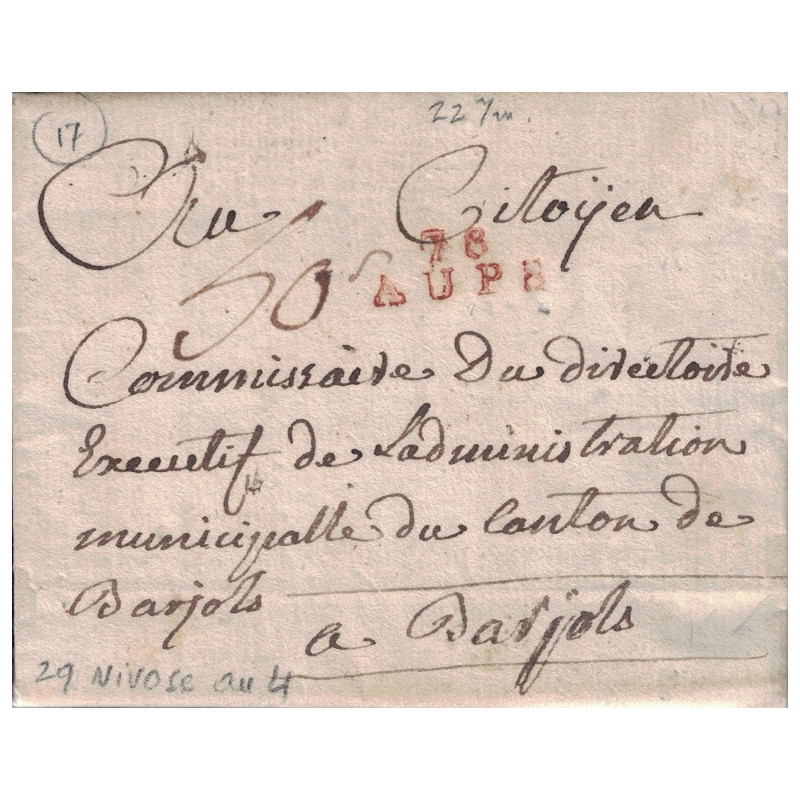 17
22 7m.
Au Citoÿen
50s
78
AUPS
Commissaire Du directoire
Executif de Ladministration
municipalle du Canton de
Barjols
a Barjols
29 Nivose an 4